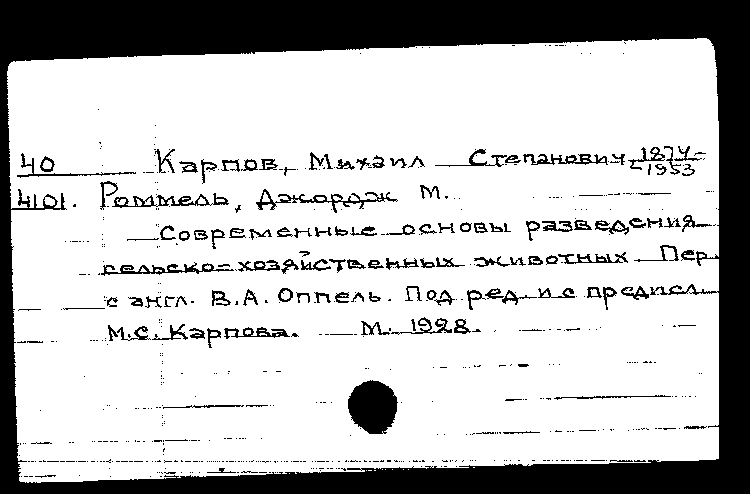 40 Карпов, Михаил Степанович, 1874-1953
4101. Роммель, Джордж М.
Современные основы разведения
сельско-хозяйственных животных. Пер.
с англ. В.А. Оппель. Под ред. и с предисл.
М.С. Карпова. М. 1928.